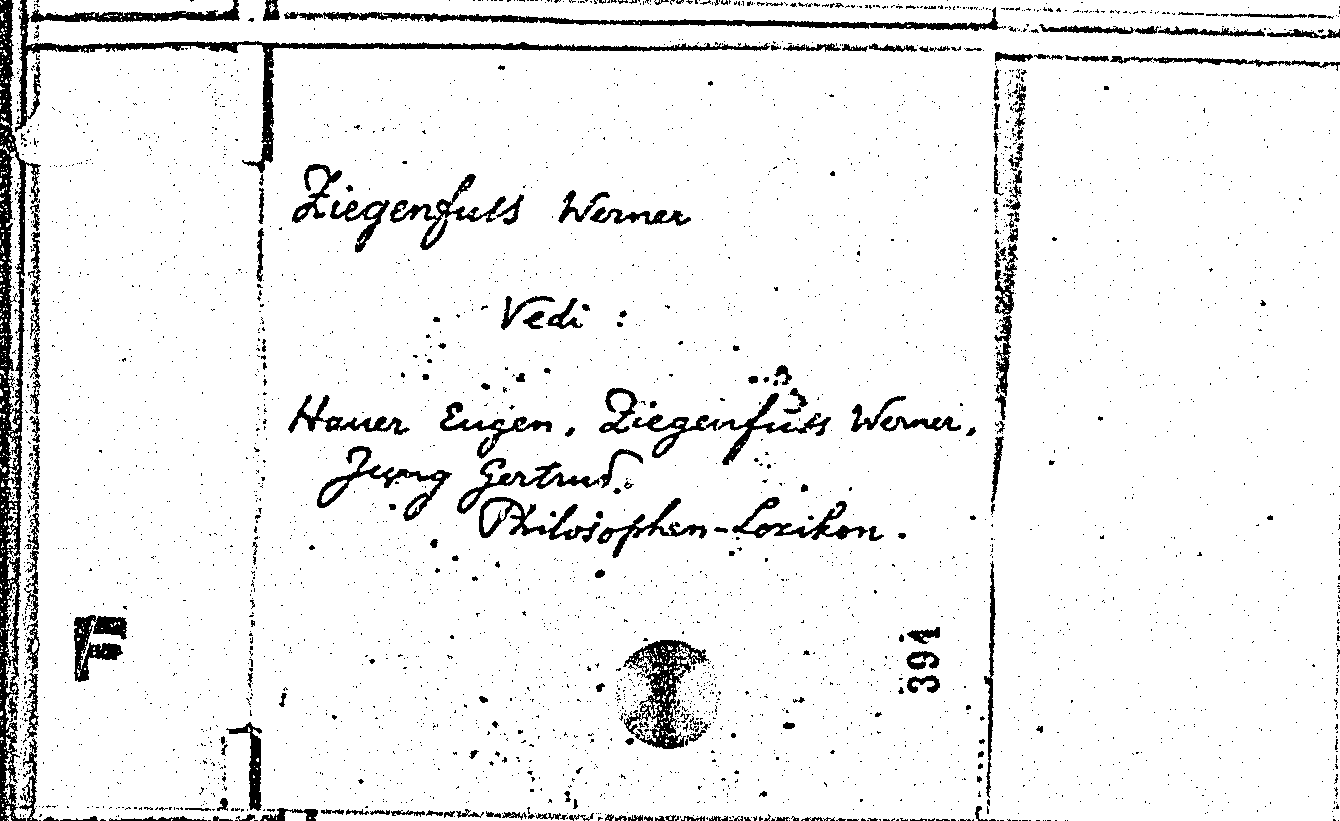 Ziegenfuss Werner
Vedi :
Hauer Eugen, Ziegenfuss Werner,
Jung Gertrud.
Philosophen-Lexikon.
F
391